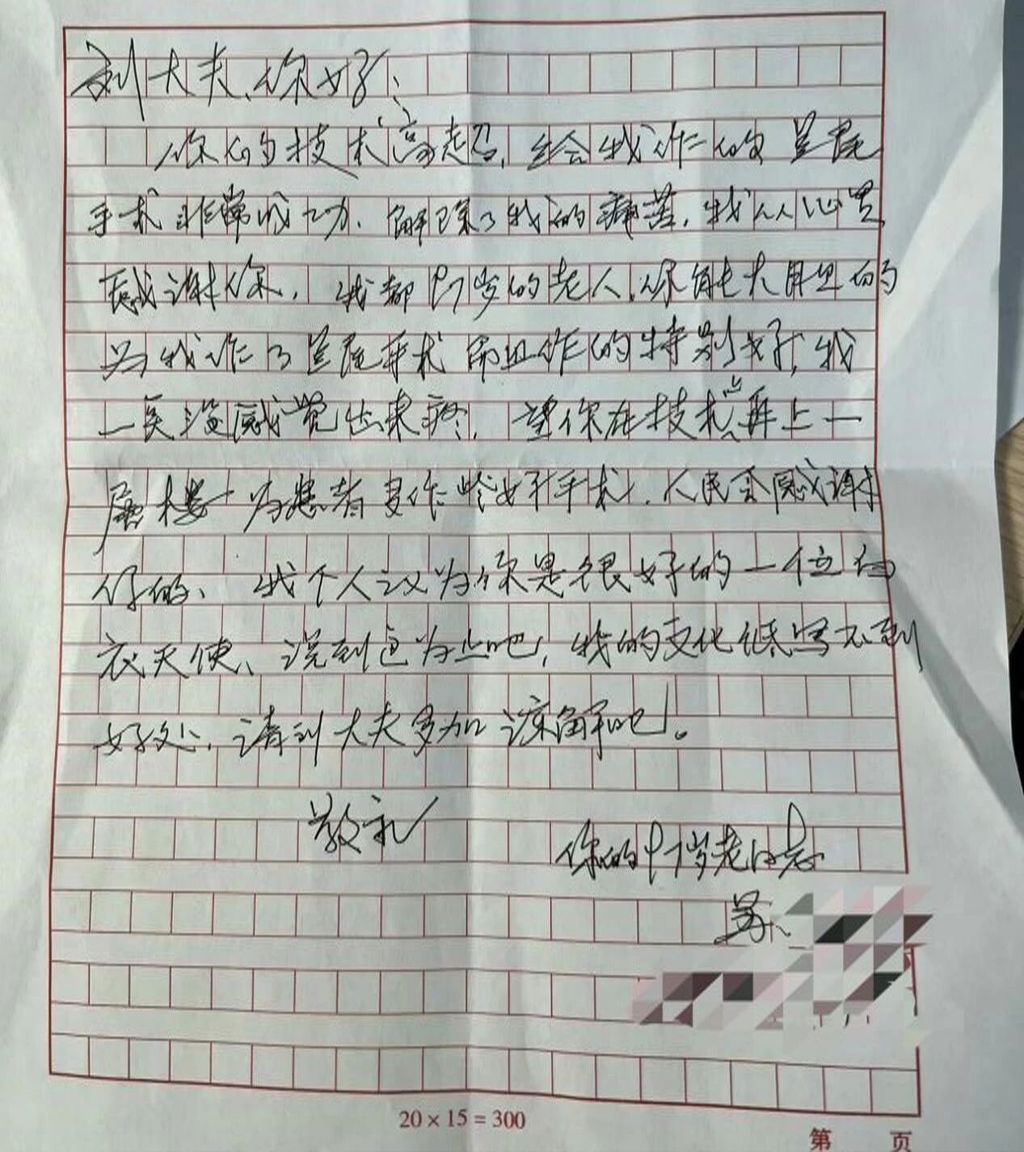 刘大夫、你好:
你的技术高超, 给我作的
手术非常成功. 解除了我的痛苦, 我从心里
感谢你. 我都87岁的老人. 你能大胆的
为我作了手术而且作的特别好, 我
一点没感觉出来疼. 望你在技术上再上一
层楼为患者多作好手术. 人民会感谢
你的、我个人认为你是很好的一位白
衣天使、说到这为止吧, 我的文化低写不到
好处, 请刘大夫多加谅解吧。
敬礼
你的87岁老同志
20×15=300
第 页